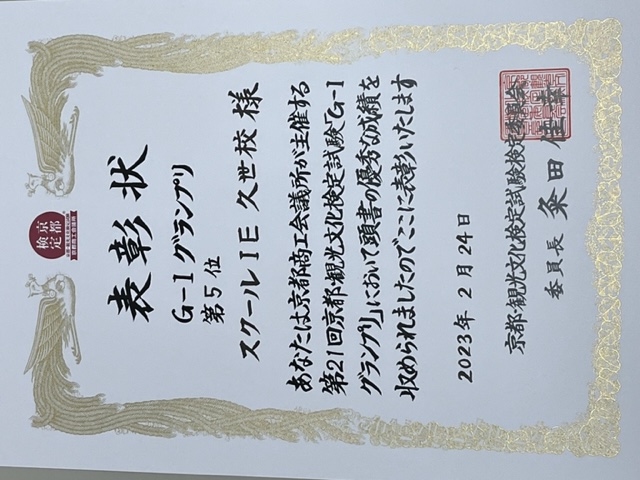 京都
検定
表彰状
G-1グランプリ
第5位
スクールIE 久世校 様
あなたは京都商工会議所が主催する
第21回京都・観光文化検定試験「G-1
グランプリ」において頭書の優秀な成績を
収められましたのでここに表彰いたします
2023年2月24日
京都・観光文化検定試験検定委員会
委員長 粂田 佳幸